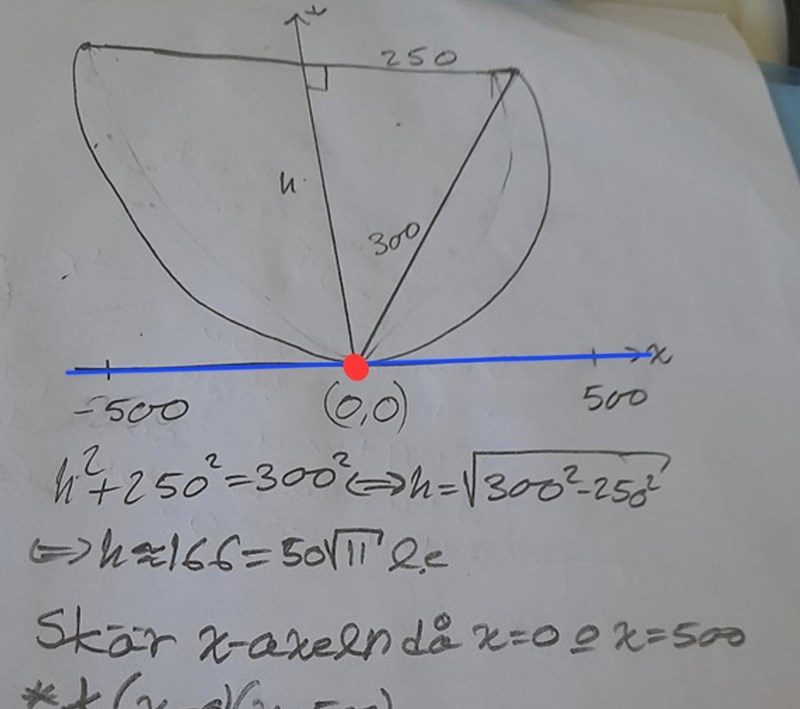 250
h
300
x
-500
(0,0)
500
h²+250²=300²⇔h=√(300²-250²)
⇔h≈166=50√11 l.e
Skär x-axeln då x=0 o x=500